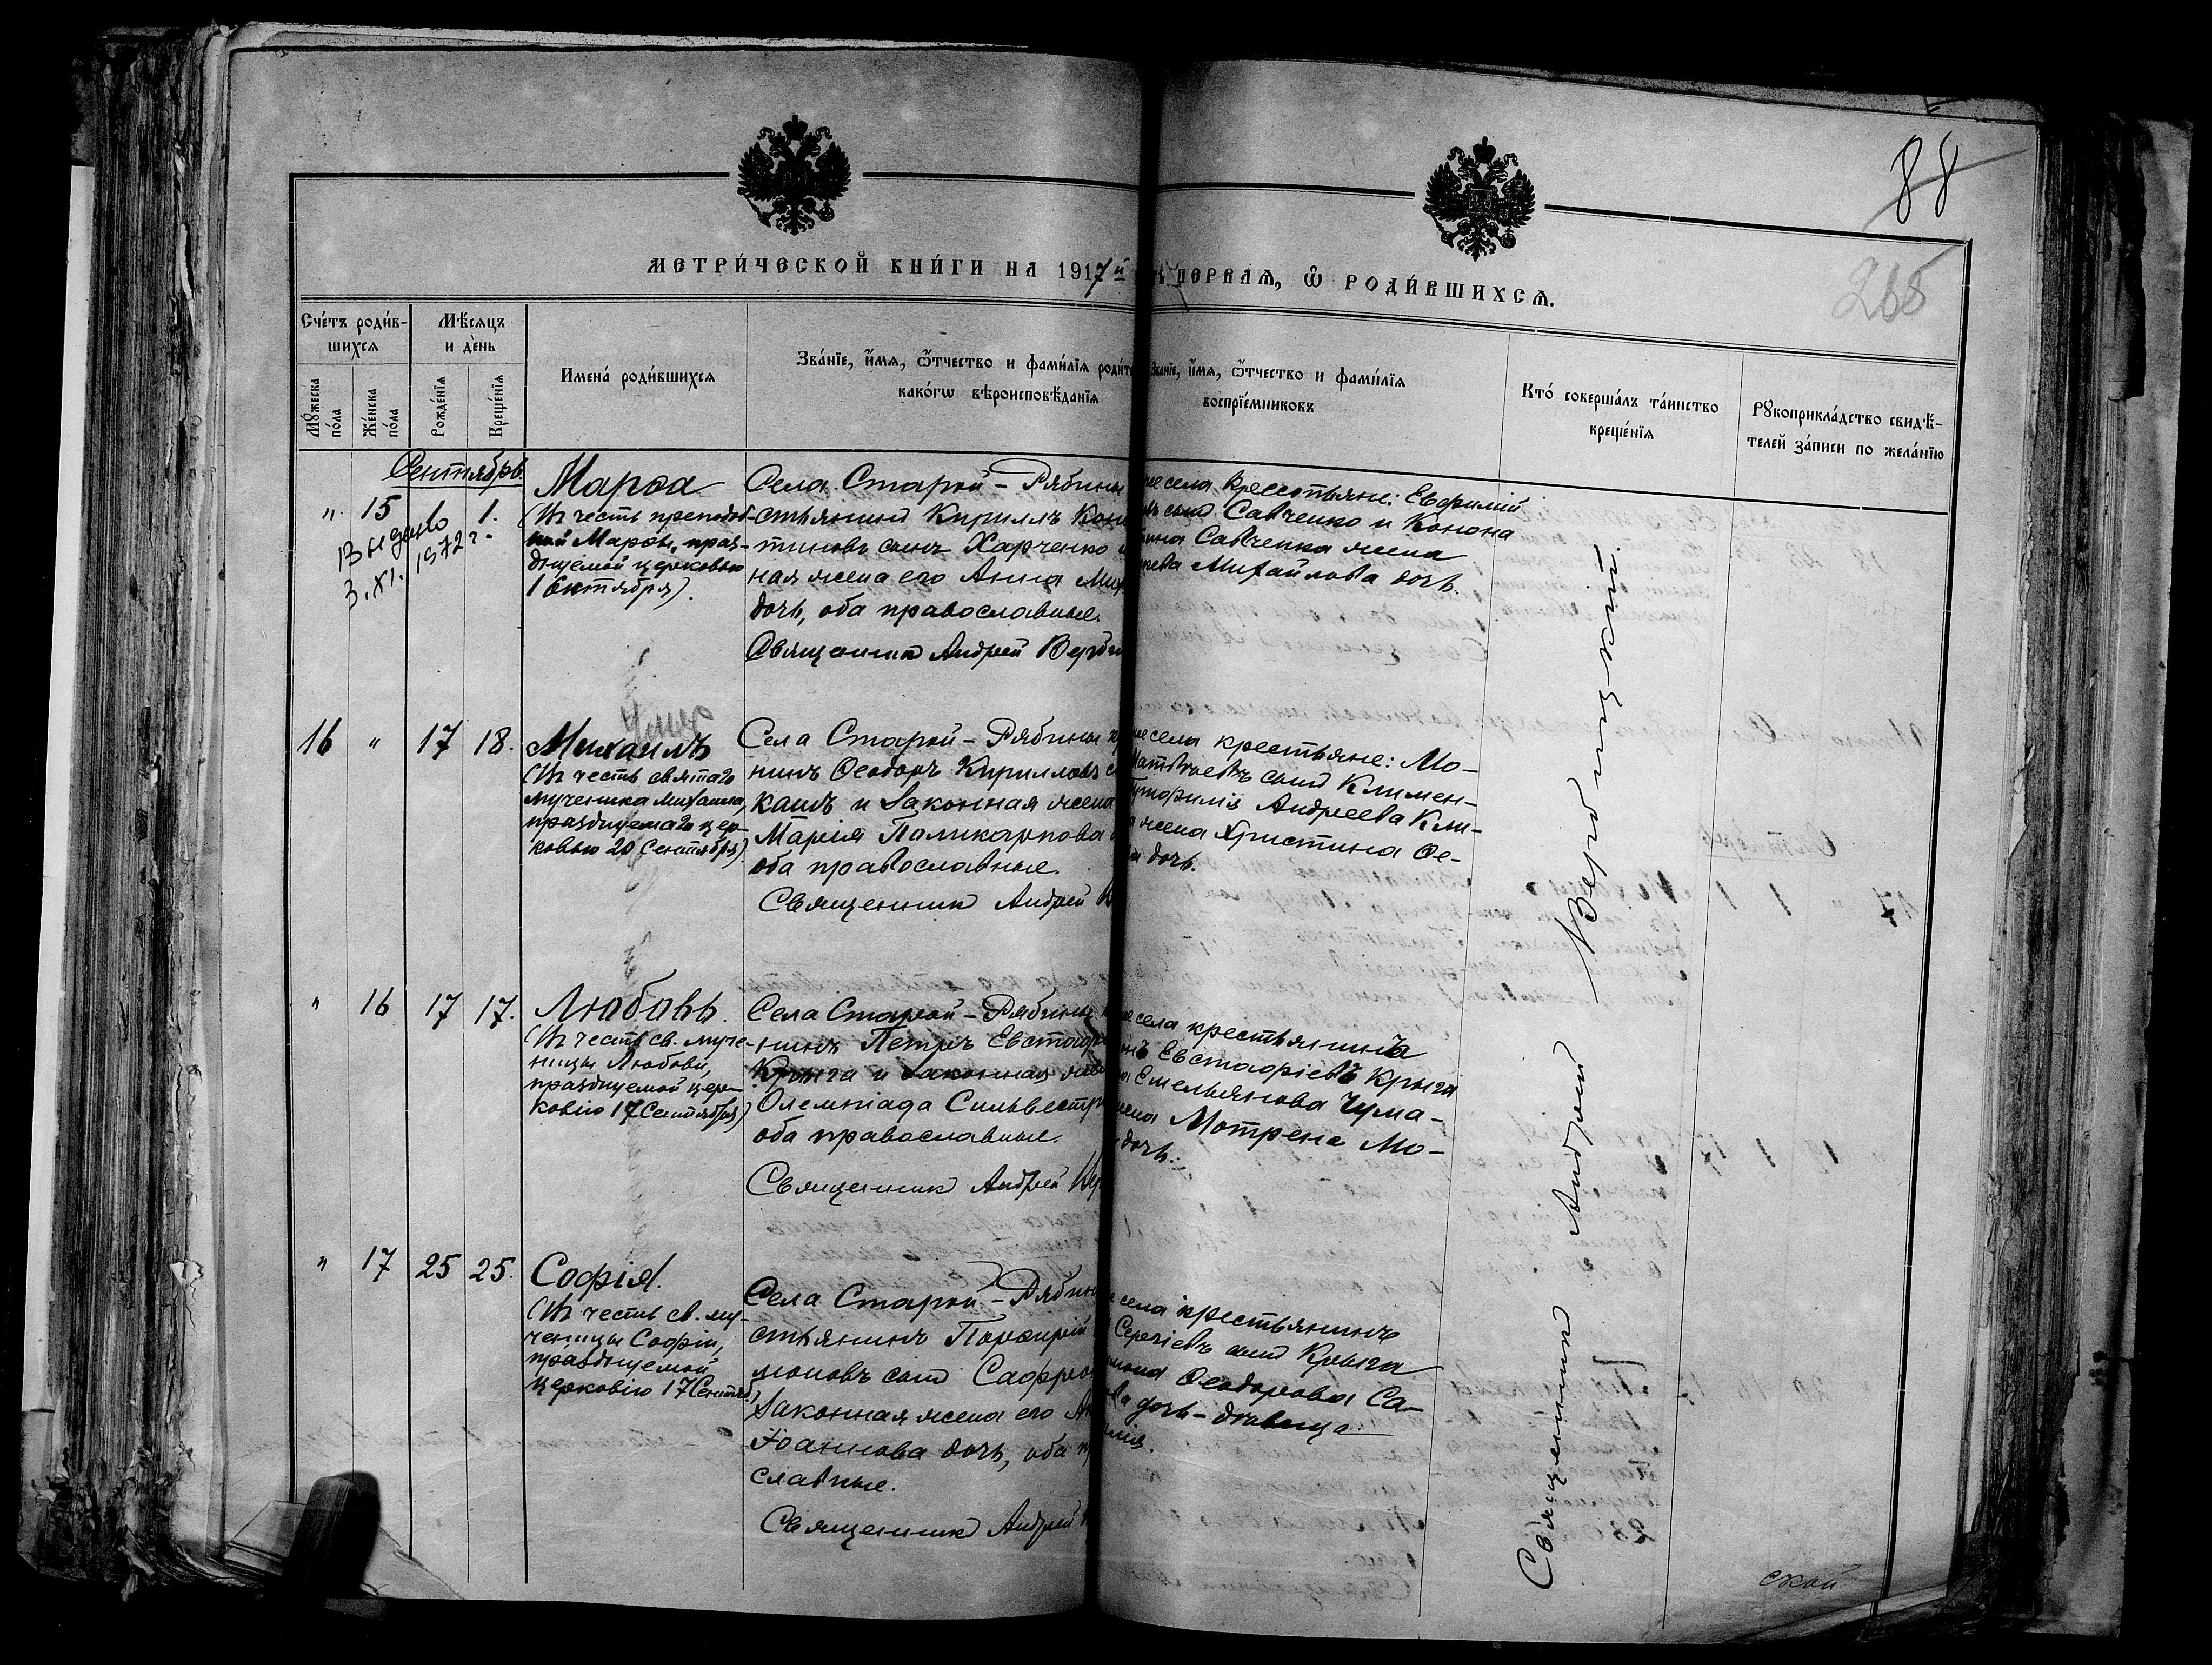 88
265
МЕТРИ́ЧЕСКОЙ КНИ́ГИ НА 1917й
ПЕРВАЯ, Ѿ РОДИ́ВШИХСЯ.
Сче́тъ роди́в-
шихся
Мѣ́сяцъ
и де́нь
Му́жеска
по́ла
Же́нска
по́ла
Рожде́нія
Креще́нія
Имена́ роди́вшихся
Зва́ніе, и́мя, ѻ҆́тчество и фами́лія роди́т
како́гѡ вѣроисповѣ́данія
Зва́ніе, и́мя, ѻ҆́тчество и фами́лія
воспріе́мниковъ
Кто́ соверша́лъ та́инство
креще́нія
Рукоприкла́дство свидѣ́-
телей за́писи по жела́нію
Сентябрь.
" 15 1.
Выдано
3.XI.1972 г.
Марѳа
(Въ честь преподоб-
ной Марѳы, праз-
днуемой церковью
1 Сентября).
Села Старой-Рябины
стьянинъ Кириллъ Кон
тиновъ сынъ Харченко и
ная жена его Анна Мих
дочь, оба православные.
Священникъ Андрей Верби
села крестьяне: Евфимій
въ сынъ Савченко и Конона
ина Савченка жена
Михайлова дочь.
16 " 17 18.
Михаилъ
(Въ честь святаго
мученика Михаила,
празднуемаго цер-
ковью 20 Сентября)
Села Старой-Рябины к
нинъ Ѳеодоръ Кирилловъ с
и законная жена
Марія Поликарпова
оба православные.
Священникъ Андрей В
села крестьяне: Мо-
Матвѣевъ сынъ Климен-
Андреева Кли-
жена Христина Ѳе-
дочь.
" 16 17 17.
Любовь.
(Въ честь св. муче-
ницы Любови,
празднуемой цер-
ковію 17 Сентября)
Села Старой-Рябины к
нинъ Петръ Евстаф
Крыга и законная жен
Олемпіада Сильвестр
оба православные.
Священникъ Андрей Вер
села крестьянинъ
Евстафіевъ Крыга
Емельянова Чума-
жена Мотрена Мо-
дочь.
" 17 25 25.
Софія.
(Въ честь св. му-
ченицы Софіи,
празднуемой
церковію 17 Сентяб.)
Села Старой-Рябин
стьянинъ Порфирій
моновъ сынъ Сафрон
законная жена его Ан
Іоаннова дочь, оба п
славные.
Священникъ Андрей
села крестьянинъ
Сергіевъ сынъ Крыга
Ѳеодорова Са-
дочь-дѣвица.
Священникъ Андрей Вербицкій.
ской